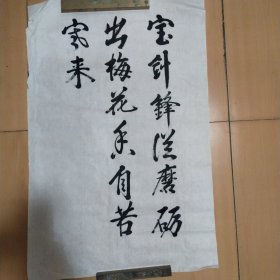 宝剑锋从磨砺
出梅花香自苦
寒来